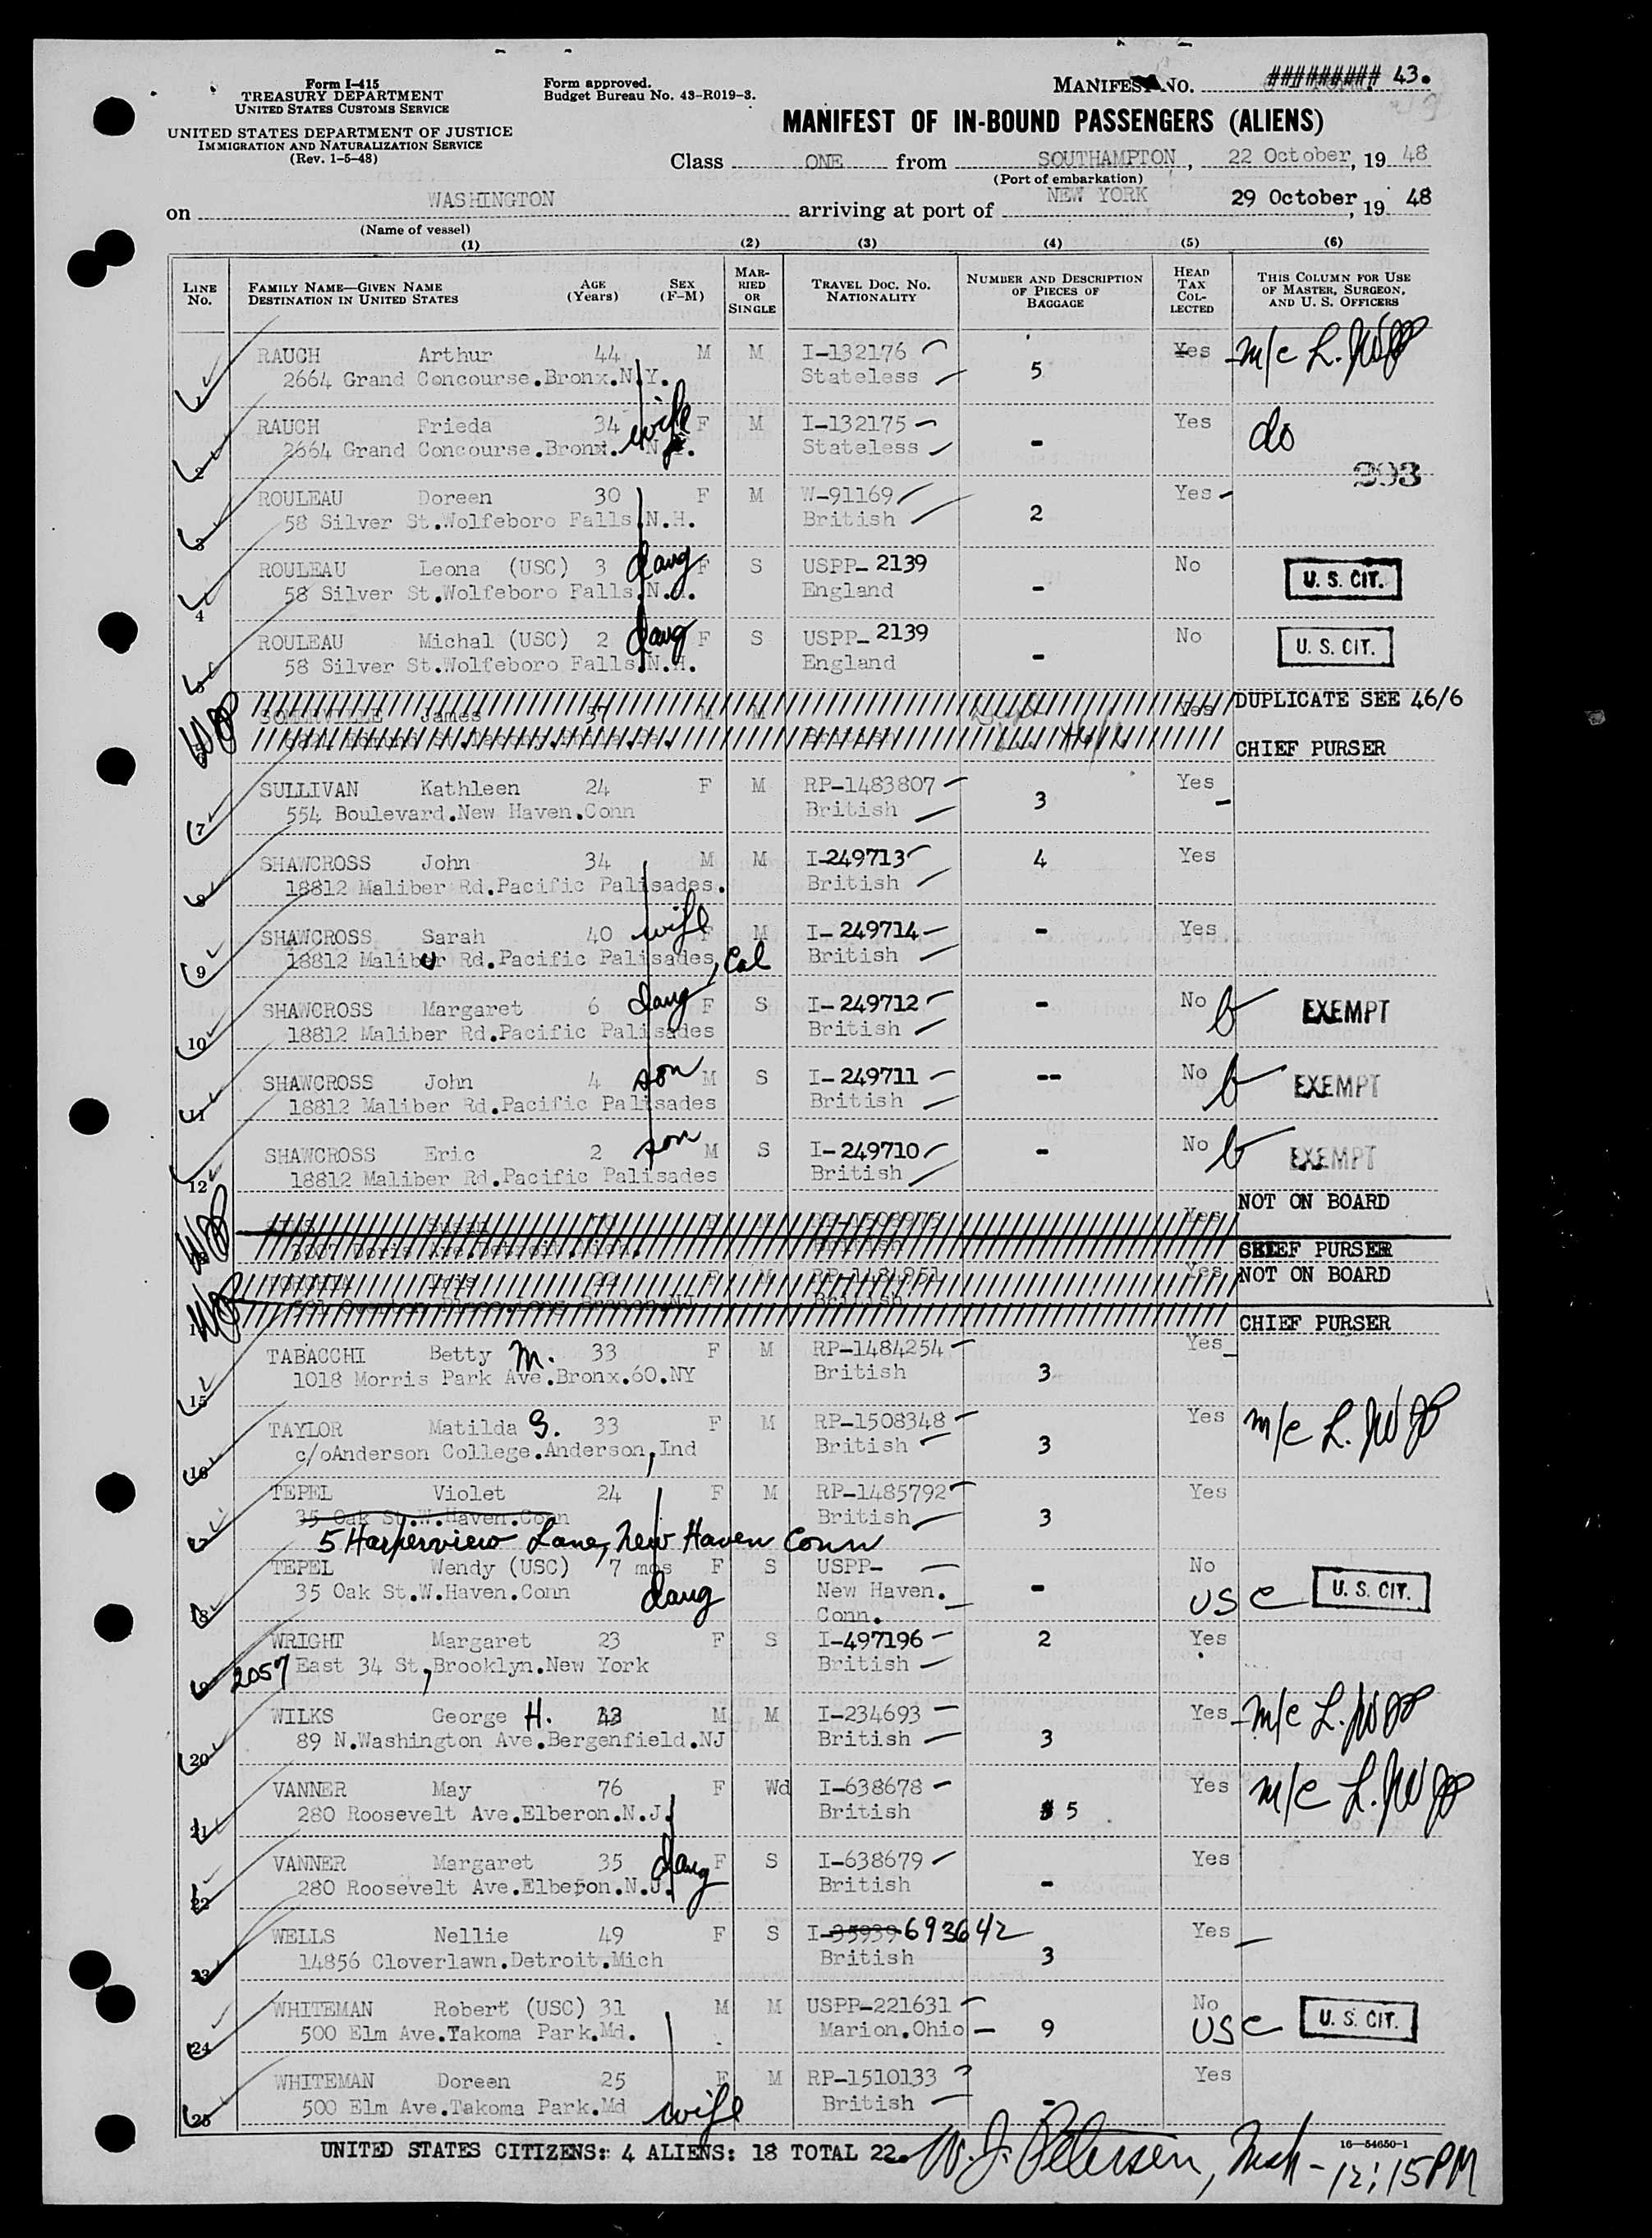 Form I-415
TREASURY DEPARTMENT
UNITED STATES CUSTOMS SERVICE
UNITED STATES DEPARTMENT OF JUSTICE
IMMIGRATION AND NATURALIZATION SERVICE
(Rev. 1-5-48)
Form approved.
Budget Bureau No. 43-R019-3.
MANIFEST NO. ######### 43.
MANIFEST OF IN-BOUND PASSENGERS (ALIENS)
Class ONE from SOUTHAMPTON, 22 October, 19 48
(Port of embarkation)
on WASHINGTON arriving at port of NEW YORK 29 October, 19 48
(Name of vessel)
(1) (2) (3) (4) (5) (6)
LINE No. FAMILY NAME—GIVEN NAME DESTINATION IN UNITED STATES AGE (Years) SEX (F-M) MARRIED OR SINGLE TRAVEL DOC. NO. NATIONALITY NUMBER AND DESCRIPTION OF PIECES OF BAGGAGE HEAD TAX COLLECTED THIS COLUMN FOR USE OF MASTER, SURGEON, AND U. S. OFFICERS
1 RAUCH Arthur 44 M M I-132176 5 Yes m/c L.
2664 Grand Concourse.Bronx.N.Y. Stateless
2 RAUCH Frieda 34 wife F M I-132175 - Yes do
2664 Grand Concourse.Bronx. N.Y. Stateless
293
3 ROULEAU Doreen 30 F M W-91169 2 Yes
58 Silver St.Wolfeboro Falls.N.H. British
4 ROULEAU Leona (USC) 3 daug F S USPP-2139 - No U. S. CIT.
58 Silver St.Wolfeboro Falls.N.H. England
5 ROULEAU Michal (USC) 2 daug F S USPP-2139 - No U. S. CIT.
58 Silver St.Wolfeboro Falls.N.H. England
SOMERVILLE James 57 M M Yes DUPLICATE SEE 46/6
British CHIEF PURSER
7 SULLIVAN Kathleen 24 F M RP-1483807 3 Yes
554 Boulevard.New Haven.Conn British
8 SHAWCROSS John 34 M M I-249713 4 Yes
18812 Maliber Rd.Pacific Palisades. British
9 SHAWCROSS Sarah 40 wife F M I-249714 - Yes
18812 Malibur Rd.Pacific Palisades, Cal British
10 SHAWCROSS Margaret 6 daug F S I-249712 - No EXEMPT
18812 Maliber Rd.Pacific Palisades British
11 SHAWCROSS John 4 son M S I-249711 -- No EXEMPT
18812 Maliber Rd.Pacific Palisades British
12 SHAWCROSS Eric 2 son M S I-249710 - No EXEMPT
18812 Maliber Rd.Pacific Palisades British
NOT ON BOARD
Susan Yes
Doris Ave.Detroit.Mich. British CHIEF PURSER
Yes NOT ON BOARD
British
CHIEF PURSER
15 TABACCHI Betty M. 33 F M RP-1484254 3 Yes
1018 Morris Park Ave.Bronx.60.NY British
16 TAYLOR Matilda G. 33 F M RP-1508348 3 Yes m/c L.
c/oAnderson College.Anderson,Ind British
17 TEPEL Violet 24 F M RP-1485792 3 Yes
35 Oak St.W.Haven.Conn British
5 Harperview Lane, New Haven Conn
18 TEPEL Wendy (USC) 7 mos F S USPP- - No
35 Oak St.W.Haven.Conn daug New Haven. Conn. USC U. S. CIT.
WRIGHT Margaret 23 F S I-497196 2 Yes
2057 East 34 St,Brooklyn.New York British
20 WILKS George H. 43 M M I-234693 3 Yes m/c L.
89 N.Washington Ave.Bergenfield.NJ British
21 VANNER May 76 F Wd I-638678 5 Yes m/c L.
280 Roosevelt Ave.Elberon.N.J. British
22 VANNER Margaret 35 daug F S I-638679 - Yes
280 Roosevelt Ave.Elberon.N.J. British
23 WELLS Nellie 49 F S I-35939 693642 3 Yes
14856 Cloverlawn.Detroit.Mich British
24 WHITEMAN Robert (USC) 31 M M USPP-221631 9 No
500 Elm Ave.Takoma Park.Md. Marion.Ohio USC U. S. CIT.
25 WHITEMAN Doreen 25 F M RP-1510133 - Yes
500 Elm Ave.Takoma Park.Md wife British
UNITED STATES CITIZENS: 4 ALIENS: 18 TOTAL 22. W. J. Petersen, 12:15PM
16—54650-1